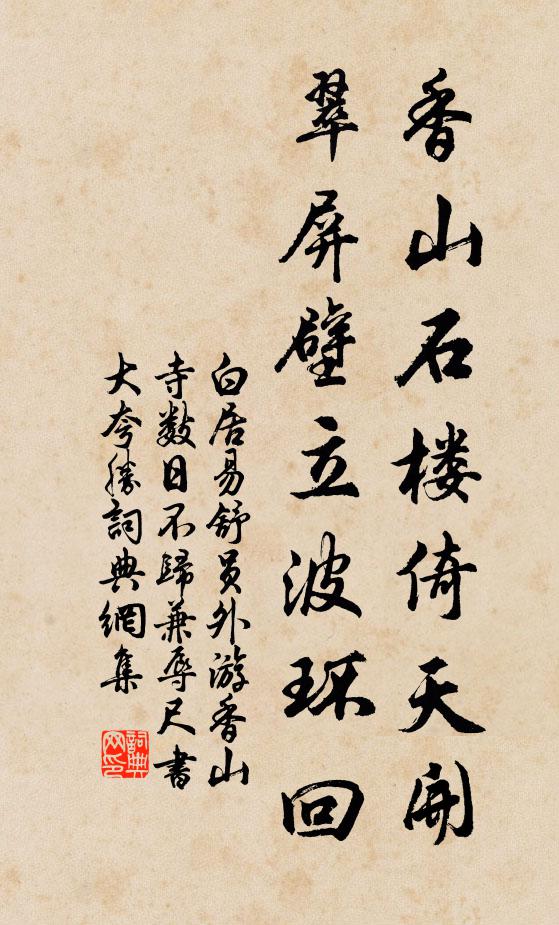 香山石楼倚天開
翠屏壁立波环回
白居易舒员外游香山
寺数日不歸兼辱尺書
大夸勝詞典網集
詞典
网印